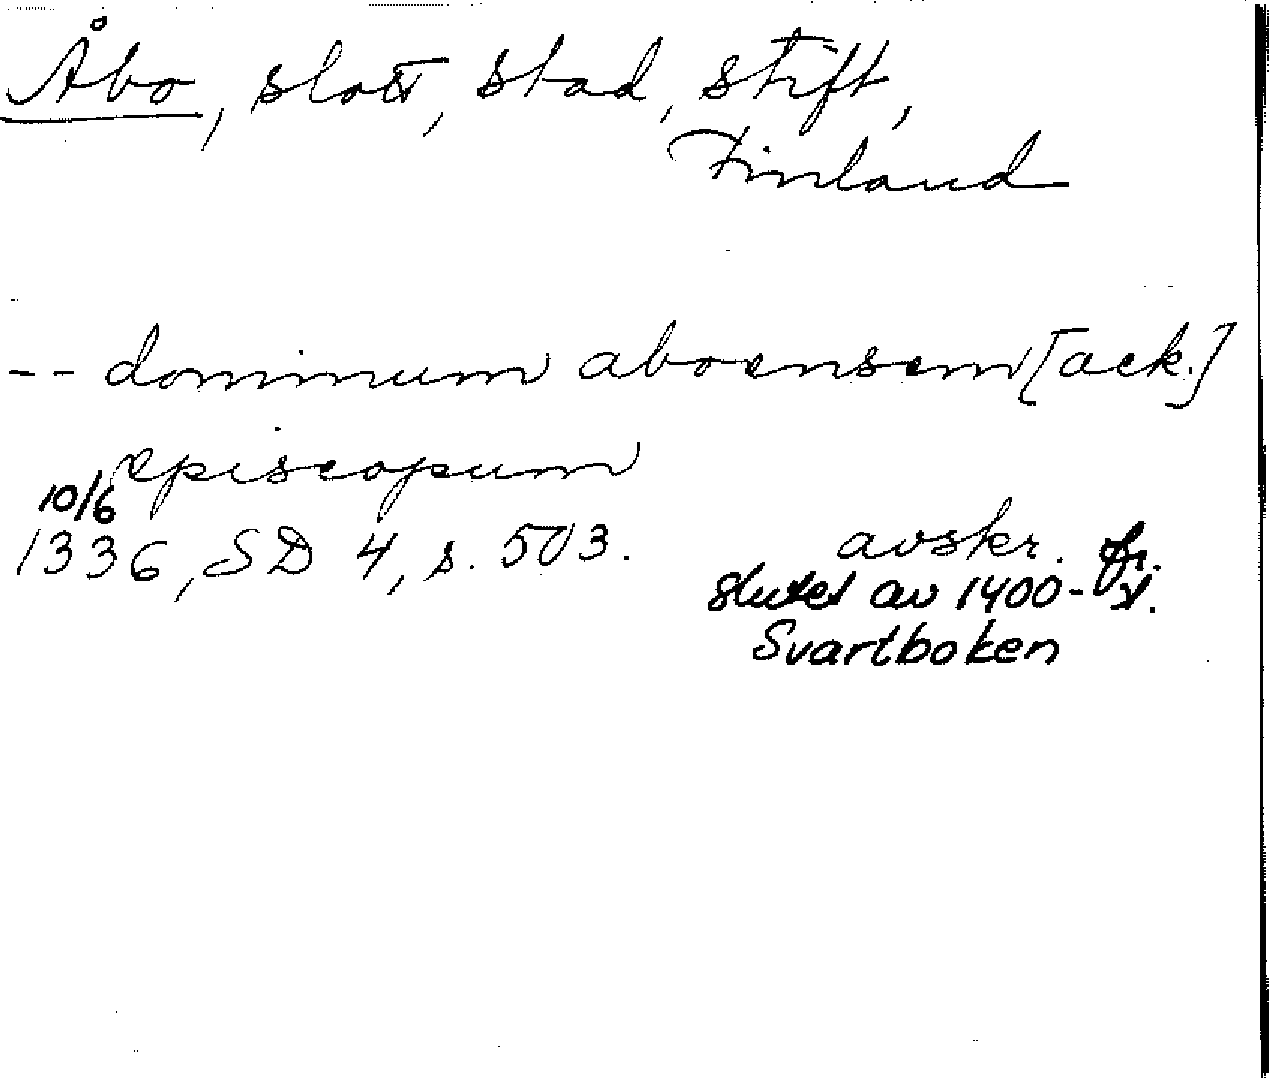 Åbo, slott, stad, stift,
Finland
-- dominum aboensem [ack.]
episcopum
10/6
1336, SD 4, s. 503. avskr. fr.
slutet av 1400-t.
Svartboken